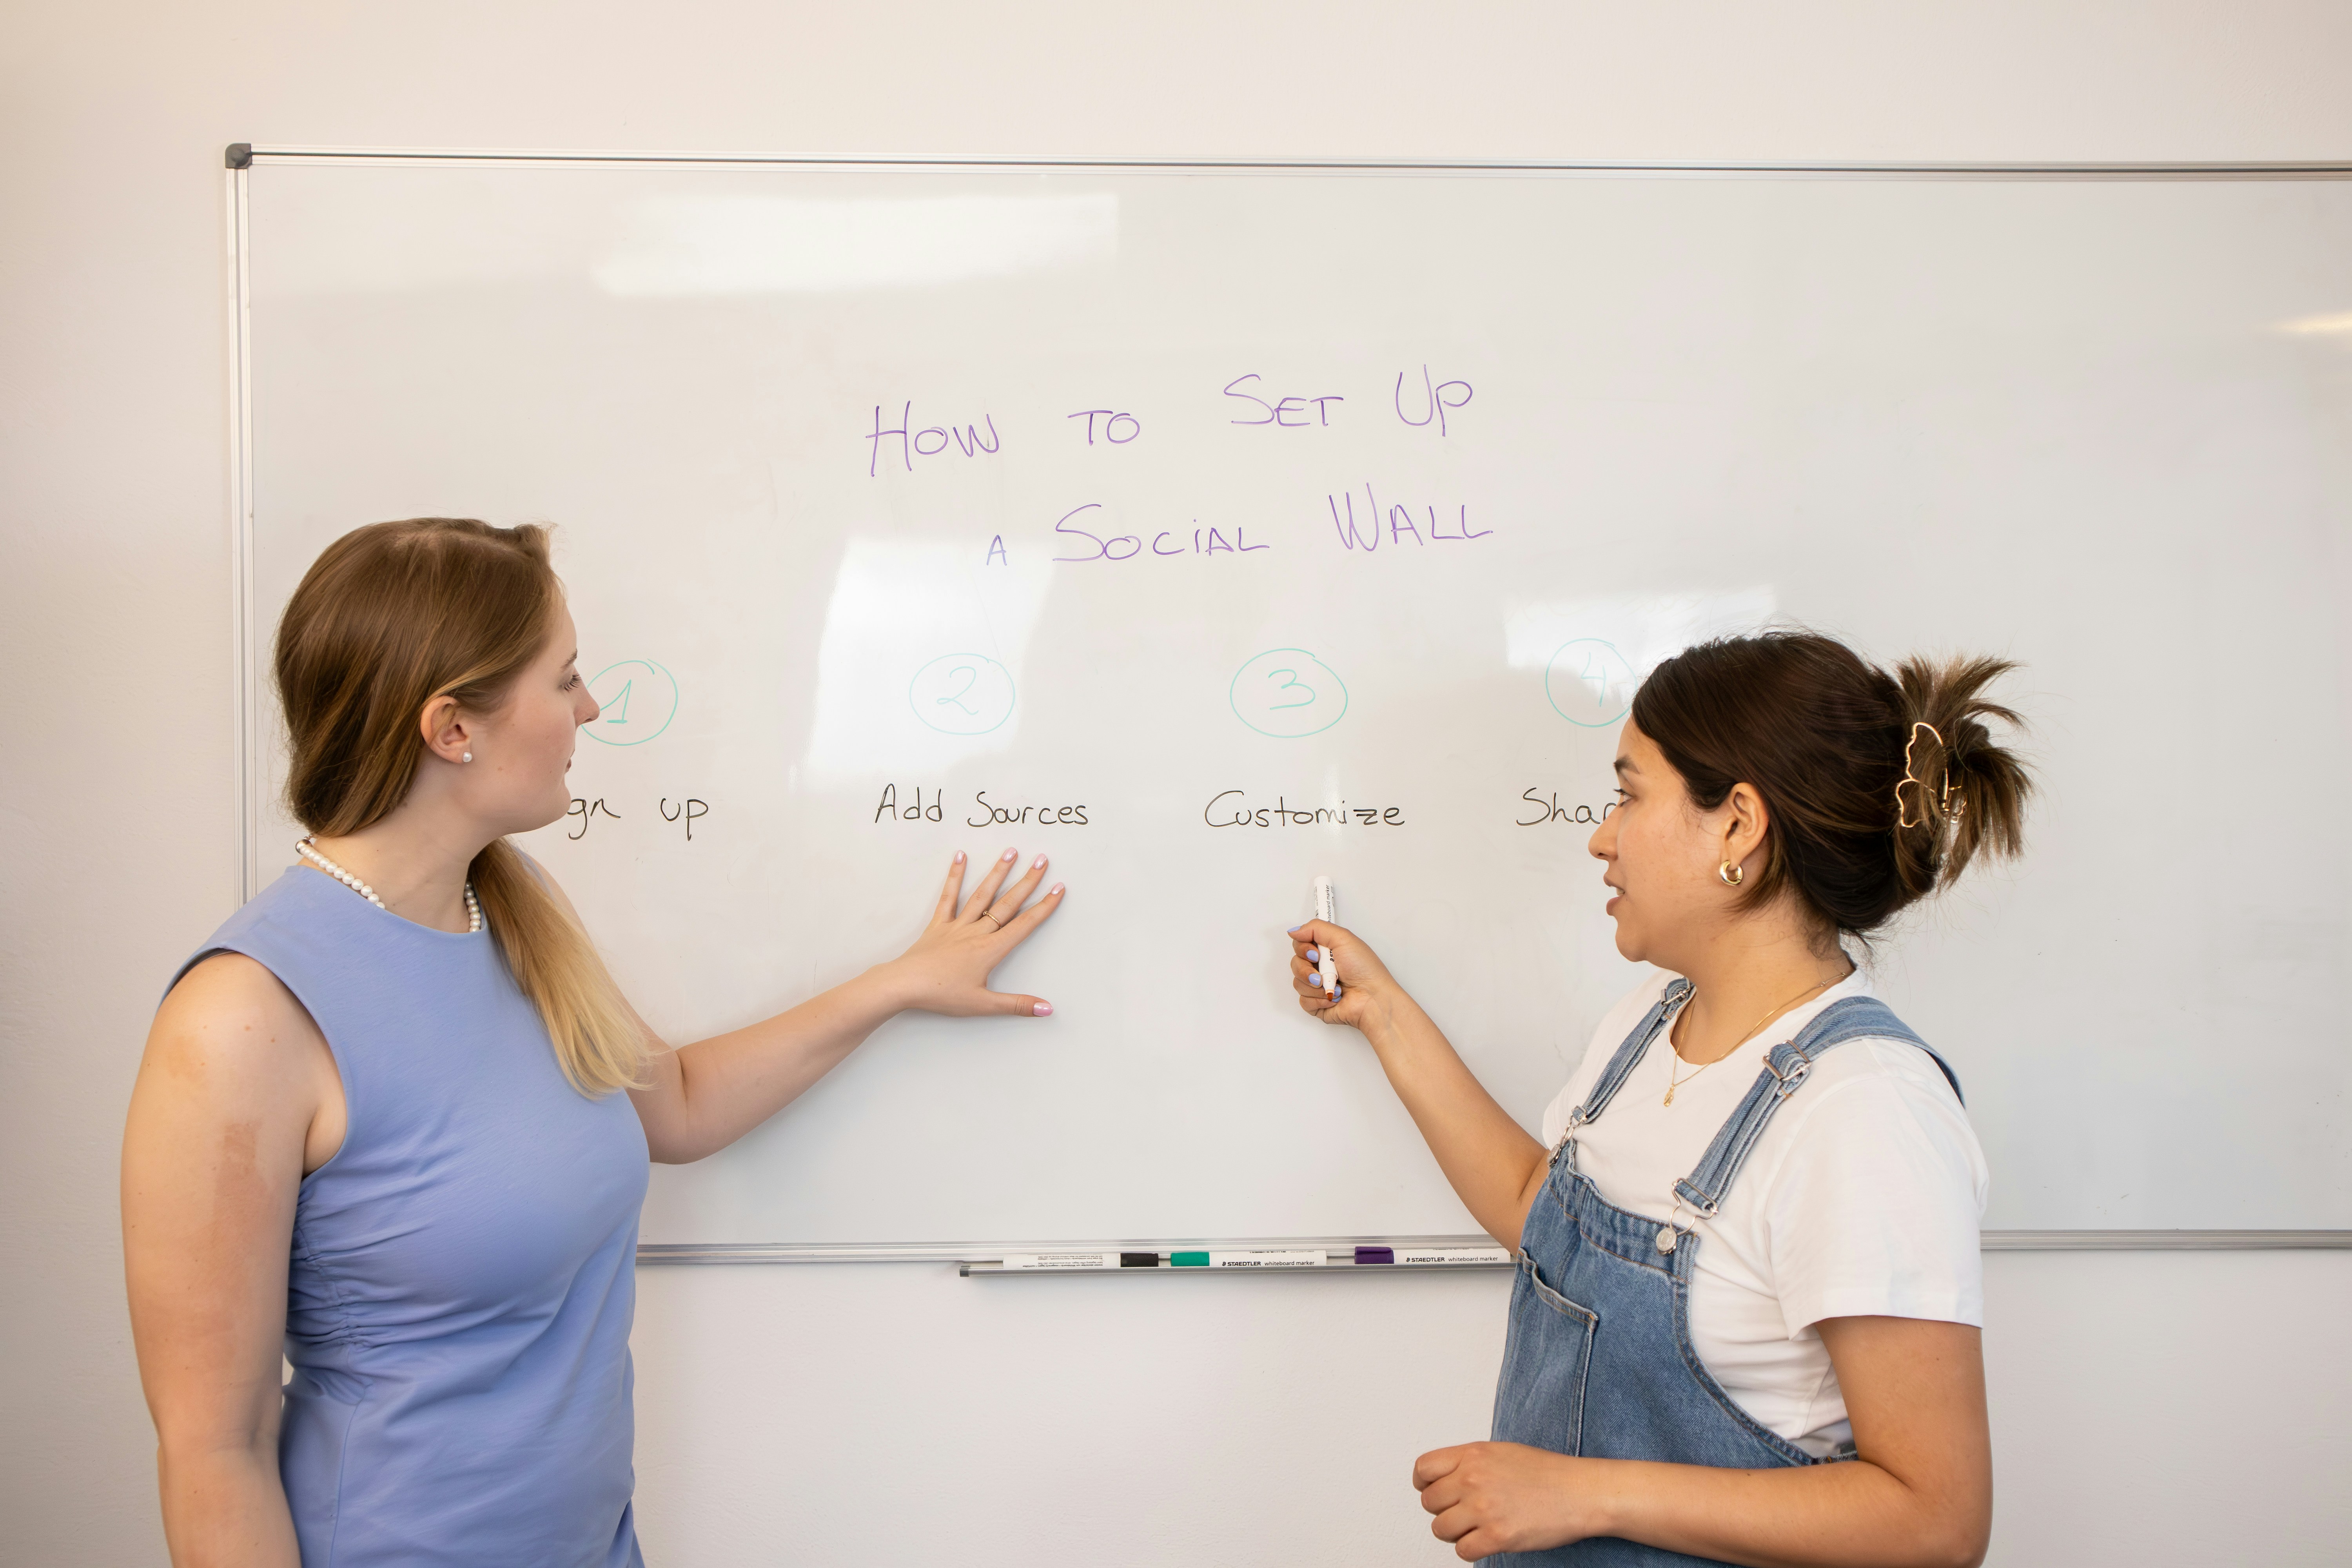 How to Set Up
a Social Wall
1 2 3 4
gn up Add Sources Customize Shar
STAEDTLER whiteboard marker STAEDTLER whiteboard marker